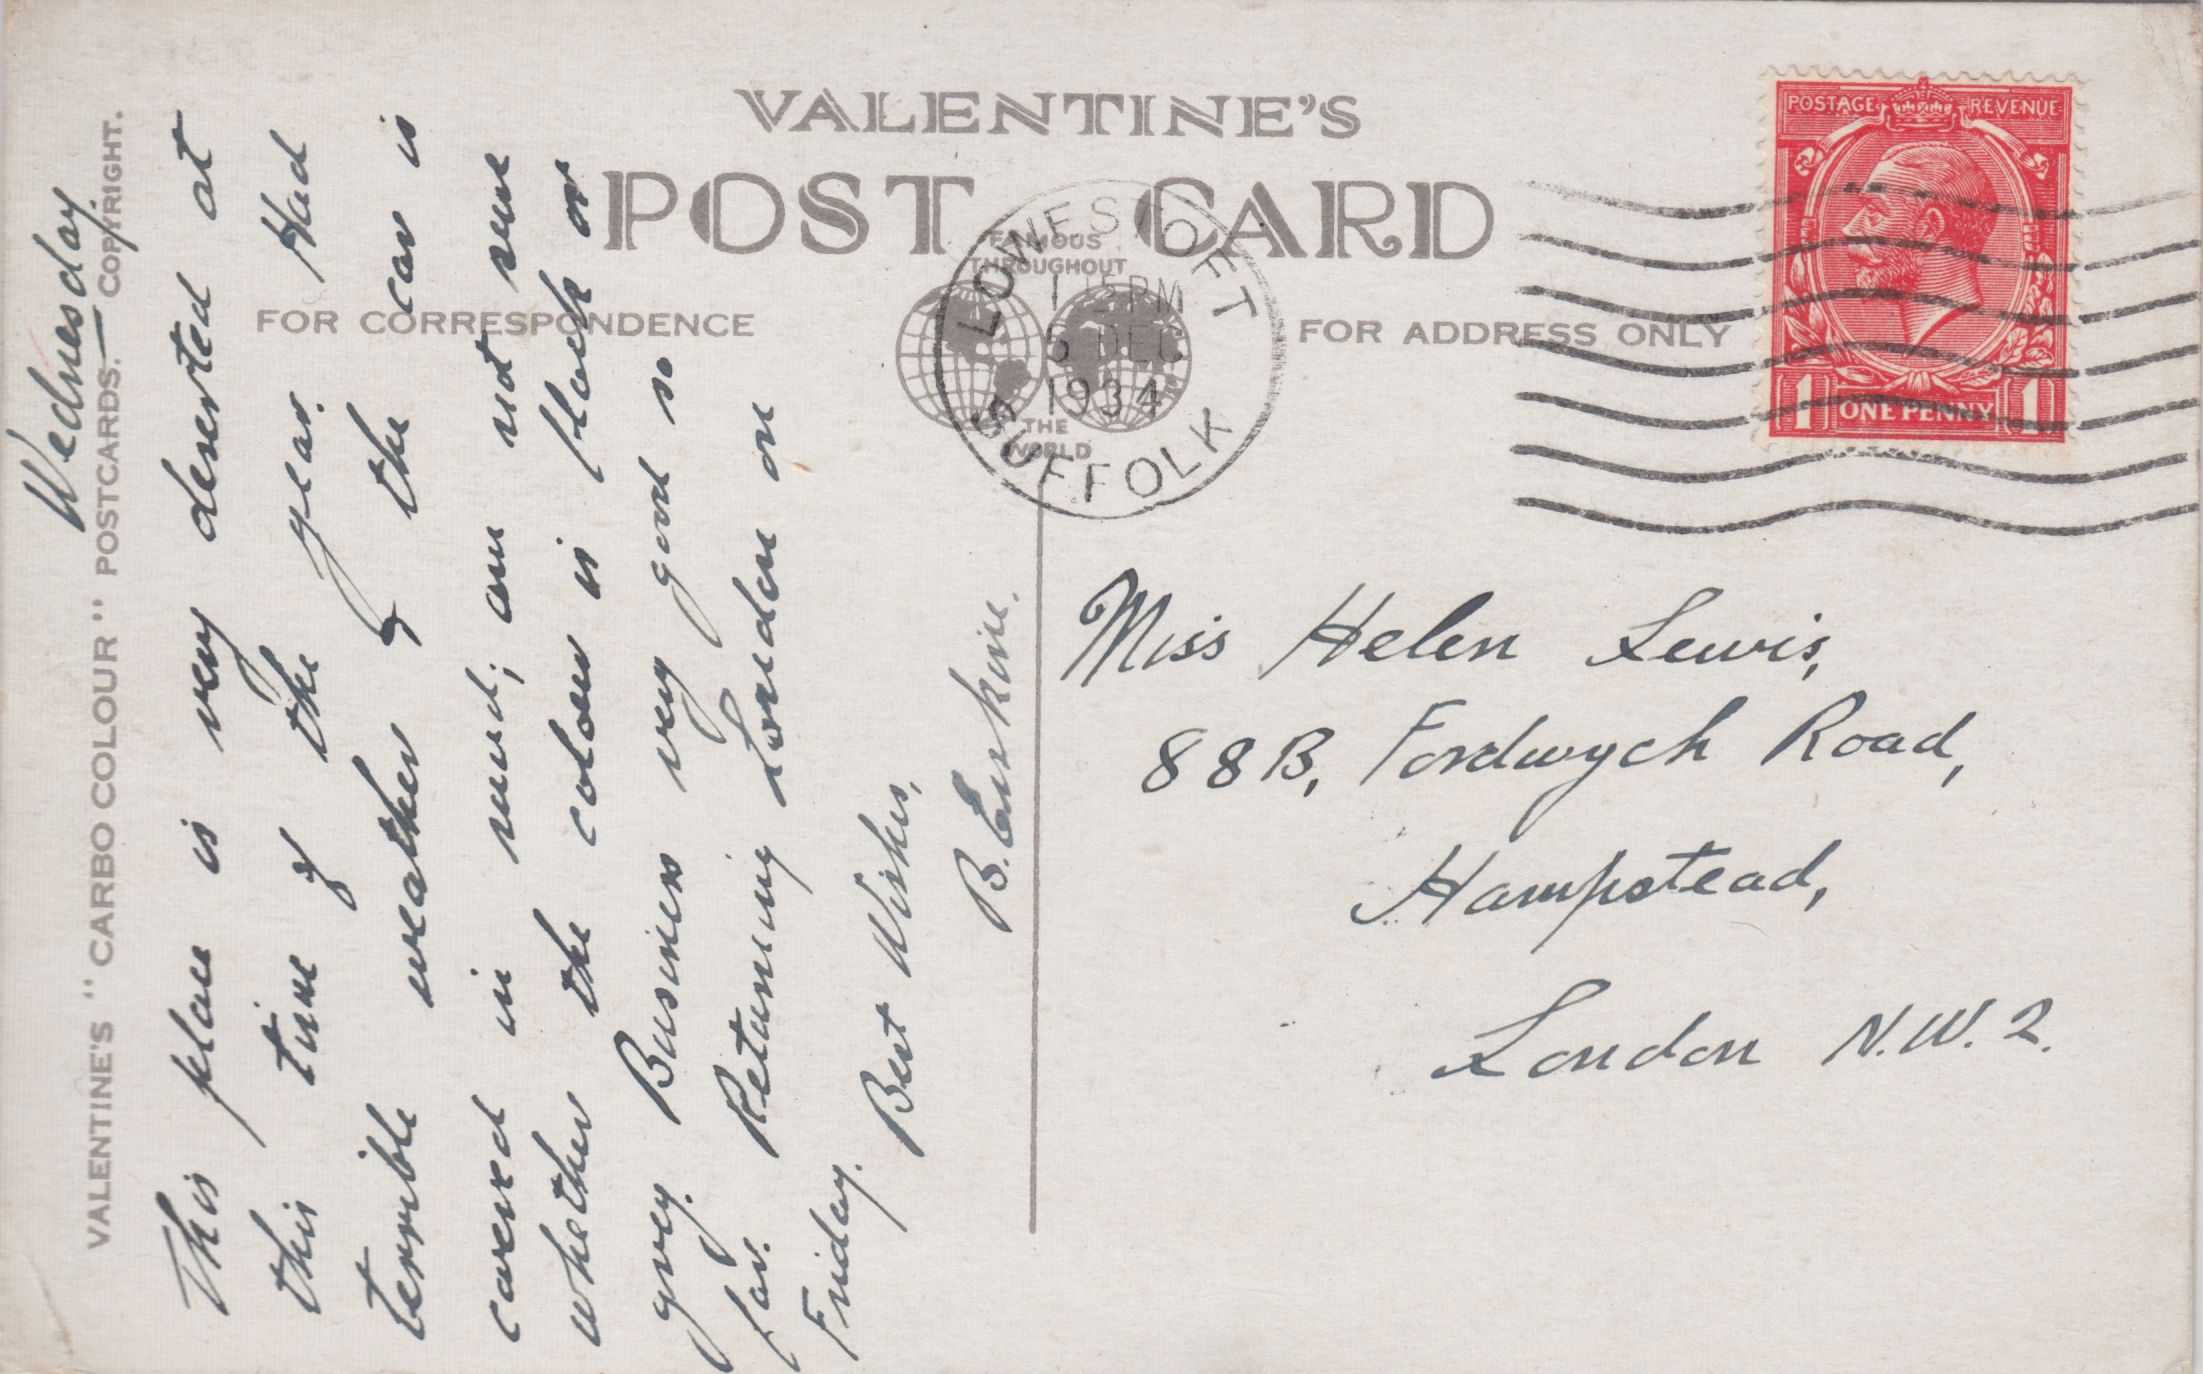 VALENTINE'S
POST CARD
FAMOUS
THROUGHOUT
THE
WORLD
FOR CORRESPONDENCE
FOR ADDRESS ONLY
VALENTINE'S "CARBO COLOUR" POSTCARDS. COPYRIGHT.
LOWESTOFT
15 PM
5 DEC
1934
SUFFOLK
POSTAGE REVENUE
1 ONE PENNY 1
Wednesday
This place is very deserted at
this time of the year. Had
terrible weather & the car is
covered in mud; am not sure
whether the colour is black or
grey. Business very good so
far. Returning London on
Friday.
Best Wishes,
B. Erskine.
Miss Helen Lewis,
88B, Fordwych Road,
Hampstead,
London N.W.2.